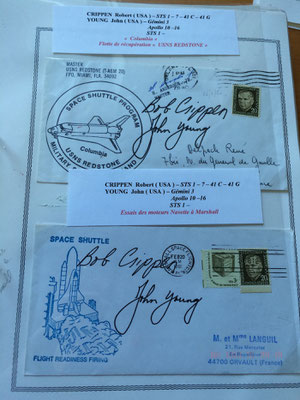 CRIPPEN Robert ( USA ) – STS 1 – 7 – 41 C – 41 G
YOUNG John ( USA ) – Gémini 3
Apollo 10 –16
STS 1 –
« Columbia »
Flotte de récupération « USNS REDSTONE »
MASTER
USNS REDSTONE (T-AGM 20)
FPO, MIAMI, FLA. 34092
SPACE SHUTTLE PROGRAM
Columbia
USNS REDSTONE
MILITARY
Bob Crippen
John Young
René
du General de Gaulle
CRIPPEN Robert ( USA ) – STS 1 – 7 – 41 C – 41 G
YOUNG John ( USA ) – Gémini 3
Apollo 10 –16
STS 1 –
Essais des moteurs Navette à Marshall
SPACE SHUTTLE
Bob Crippen
John Young
FEB 20
FLIGHT READINESS FIRING
M. et Mme LANGUIL
44700 ORVAULT (France)